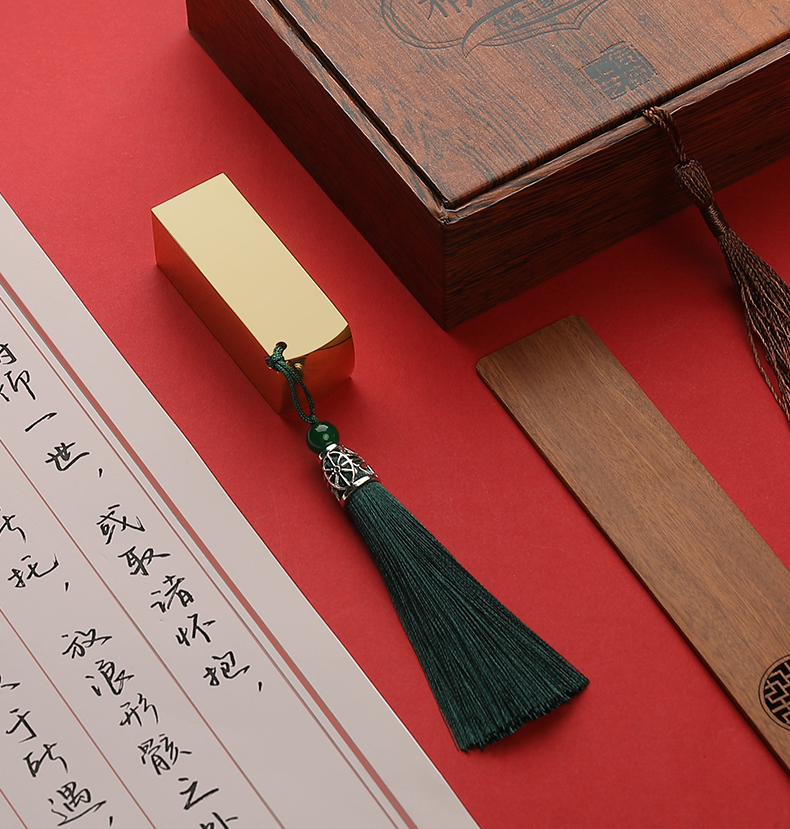 仰一世，或取诸怀抱，
托，放浪形骸之
于所遇，